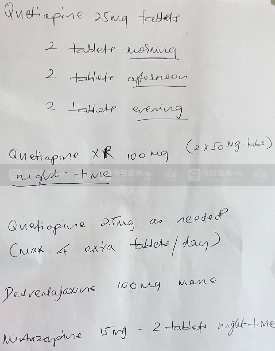 Quetiapine 25mg tablets
2 tablets morning
2 tablets afternoon
2 tablets evening
Quetiapine XR 100mg (2x50mg tabs)
night-time
Quetiapine 25mg as needed
(max 4 extra tablets/day)
Desvenlafaxine 100mg mane
Mirtazapine 15mg - 2 tablets night-time